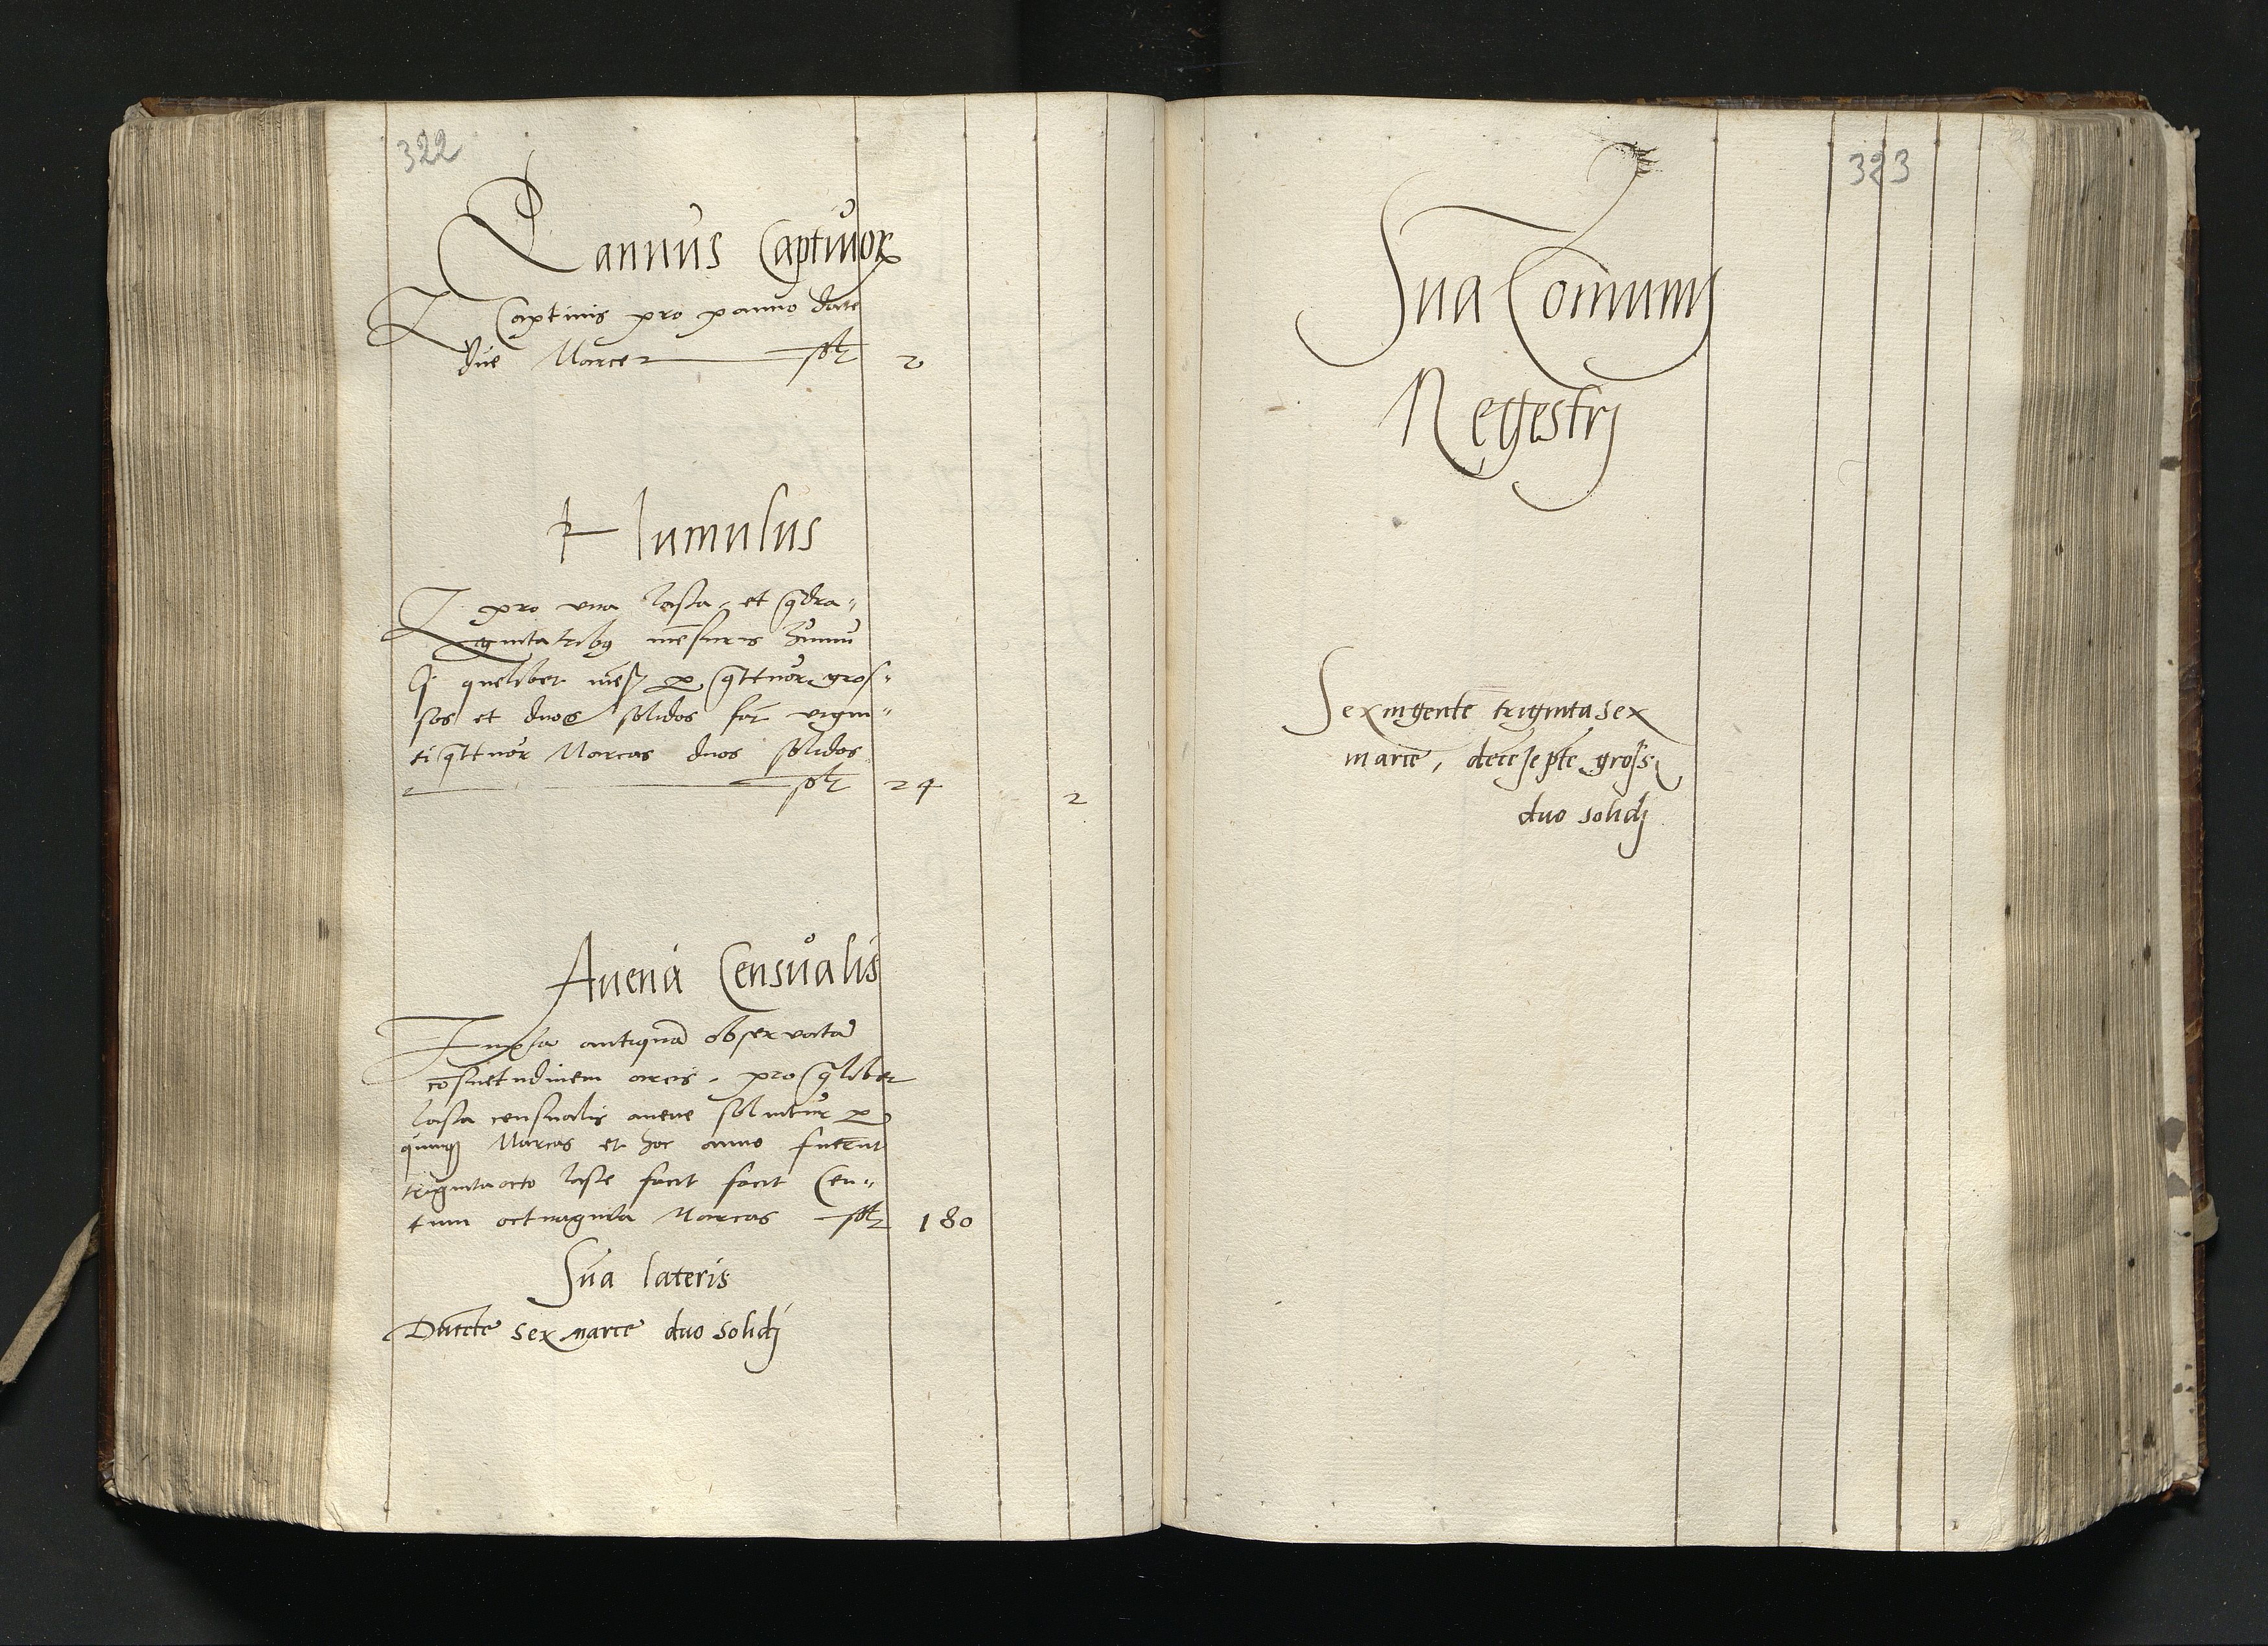 322
Pannus Captiuor
Captiuis pro panno date
due Marce 2
Humulus
pro vna lasta et qdra-
ginta tribus mēsuris humu
li quelibet mēs p qttuor gros-
sos et duos solidos fac vigin-
ti qttuor Marcas duos solidos
24 2
Auena Censualis
antiqua observata
cōsuetudinem arcis, pro qlibet
lasta censualis auene soluitur p
quinq Marcas et hoc anno fuerūt
trigintaocto laste facit facit Cen-
tum octuaginta Marcas 180
Sūa lateris
Ducēte sex marce duo solidj
323
Sūa Comunis
Regestrj
Sexingente trigintasex
marce, decē septē gross
duo solidj